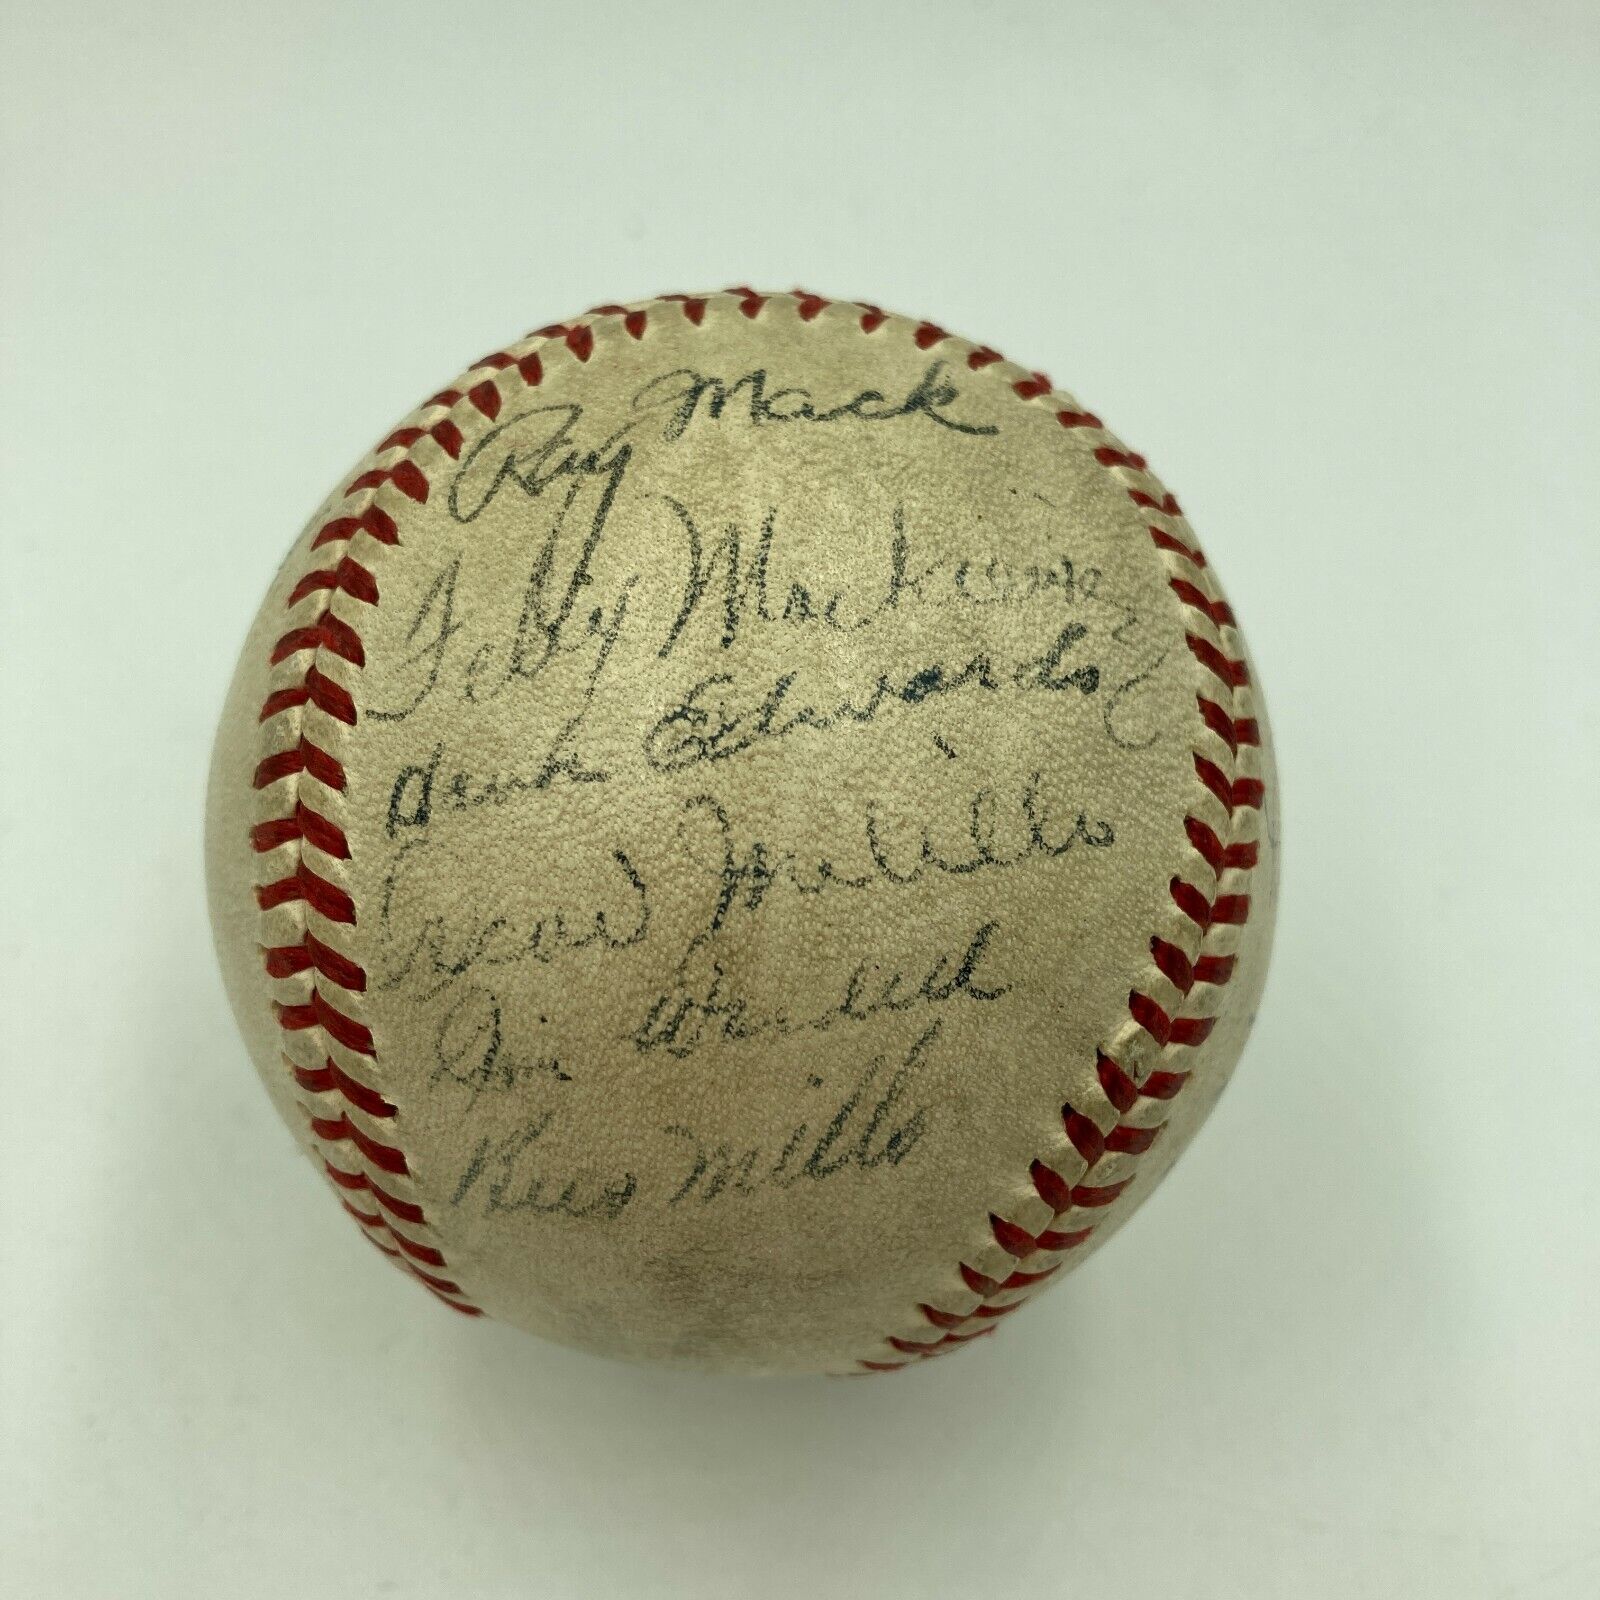 Ray Mack
Felix Mackiewicz
Hank Edwards
Oscar Melillo
Jim
Buster Mills